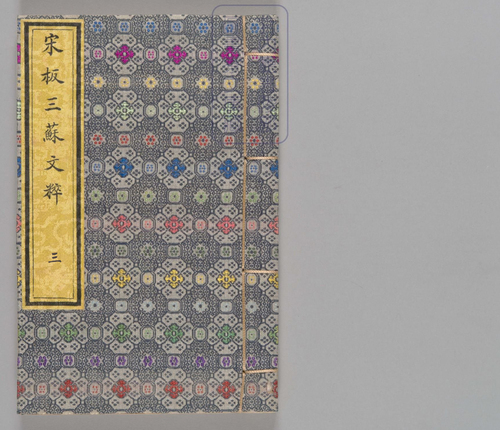 宋板三蘇文粹
三